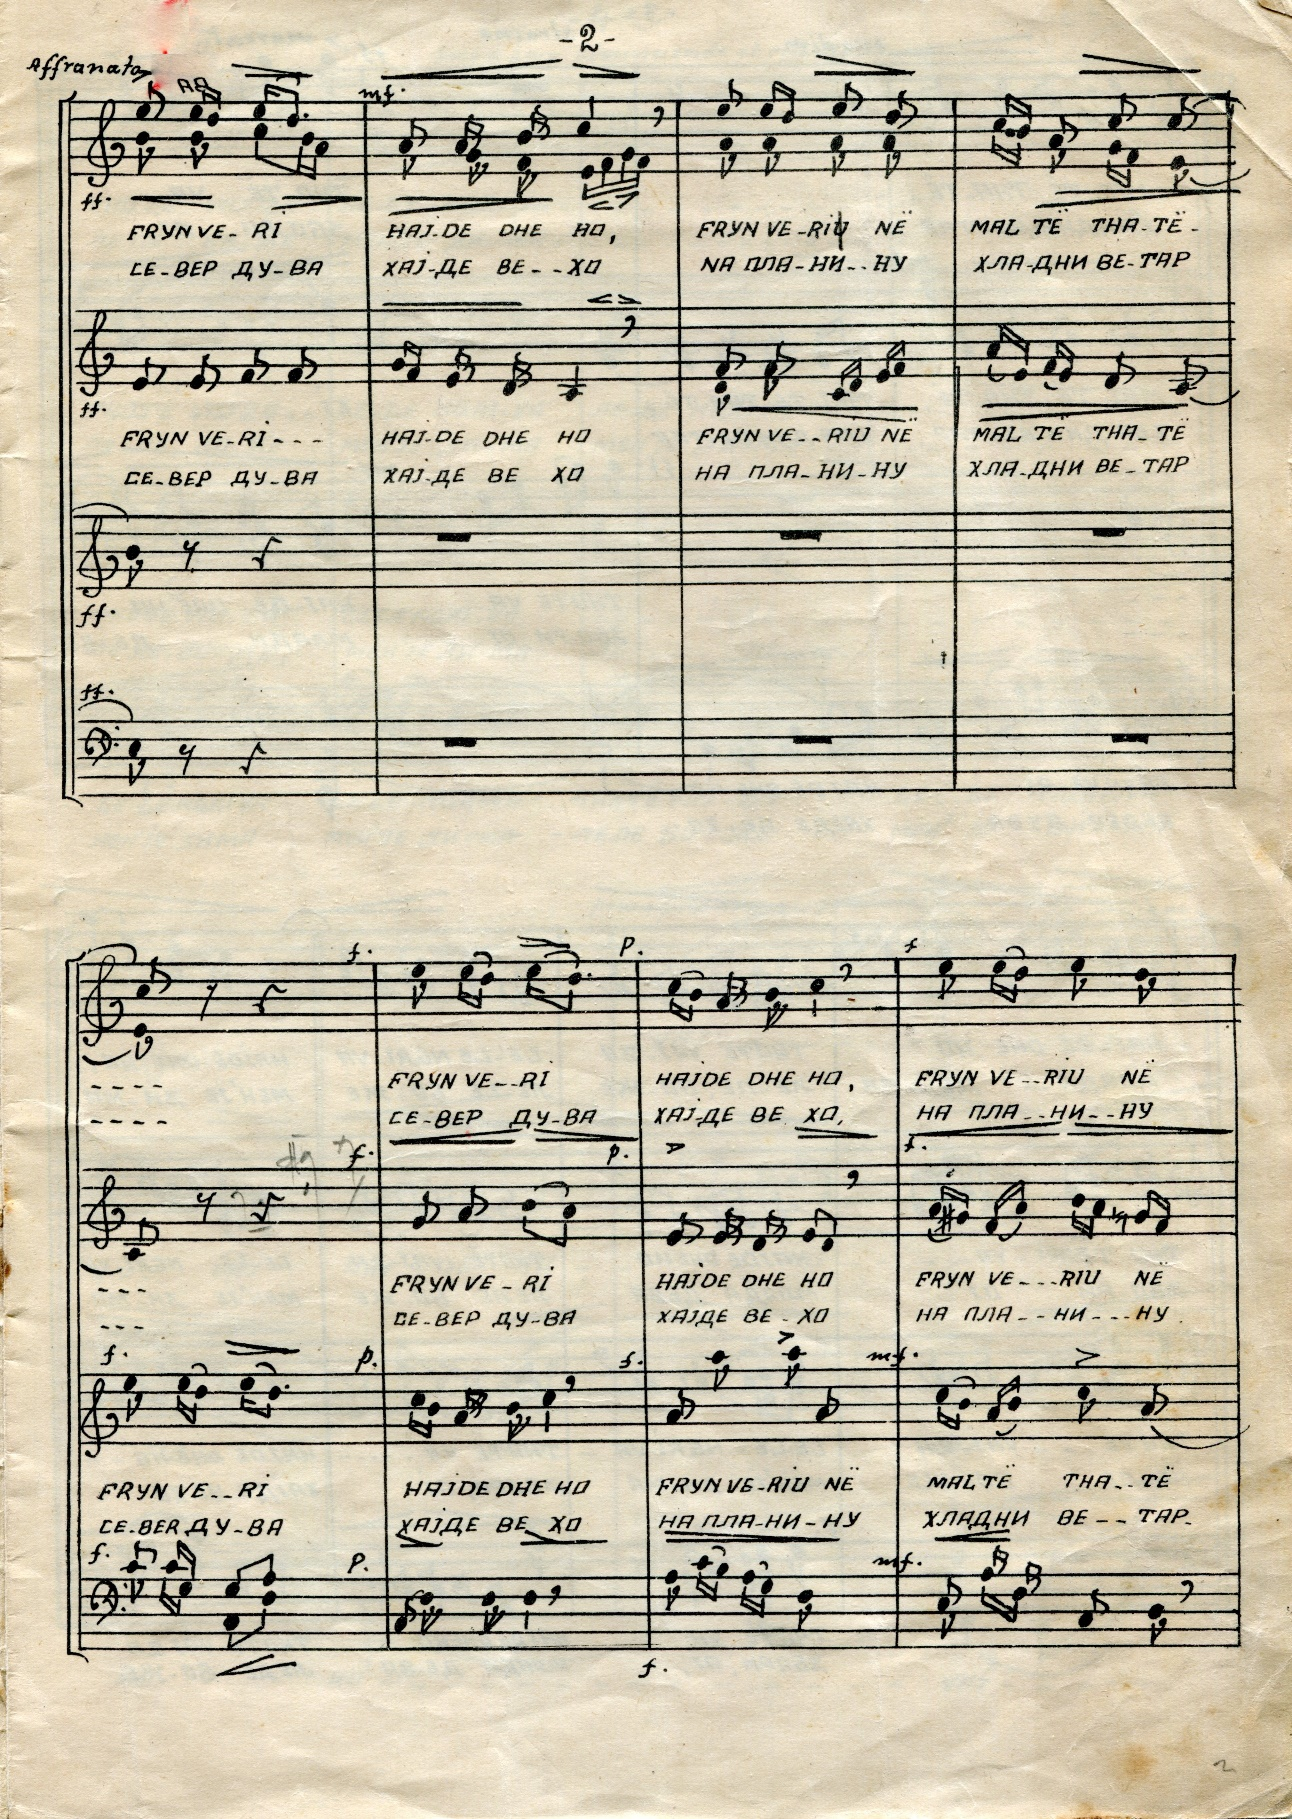 -2-
Affranato
mf.
ff.
FRYN VE- RI HAJ-DE DHE HO, FRYN VE-RIU NË MAL TË THA-TË-
СЕ-ВЕР ДУ-ВА ХАЈ-ДЕ ВЕ--ХО NA ПЛА-НИ--НУ ХЛА-ДНИ ВЕ-ТАР
ff.
FRYN VE-RI--- HAJ-DE DHE HO FRYN VE--RIU NË MAL TË THA-TË
СЕ-ВЕР ДУ-ВА ХАЈ-ДЕ ВЕ ХО НА ПЛА-НИ-НУ ХЛА-ДНИ ВЕ-ТАР
ff.
ff.
f. P. f
---- FRYN VE--RI HAJDE DHE HO, FRYN VE--RIU NË
---- СЕ-ВЕР ДУ-ВА ХАЈ-ДЕ ВЕ ХО, НА ПЛА--НИ--НУ
f. p. f.
--- FRYN VE-RI HAJDE DHE HO FRYN VE---RIU NË
--- СЕ-ВЕР ДУ-ВА ХАЈДЕ ВЕ-ХО НА ПЛА--НИ---НУ
f. p. f. mf.
FRYN VE--RI HAJDE DHE HO FRYN VE-RIU NË MAL TË THA--TË
СЕ-ВЕR ДУ-ВА ХАЈДЕ ВЕ ХО НА ПЛА-НИ-НУ ХЛАДНИ ВЕ--ТАР-
f. P. mf.
f.
2